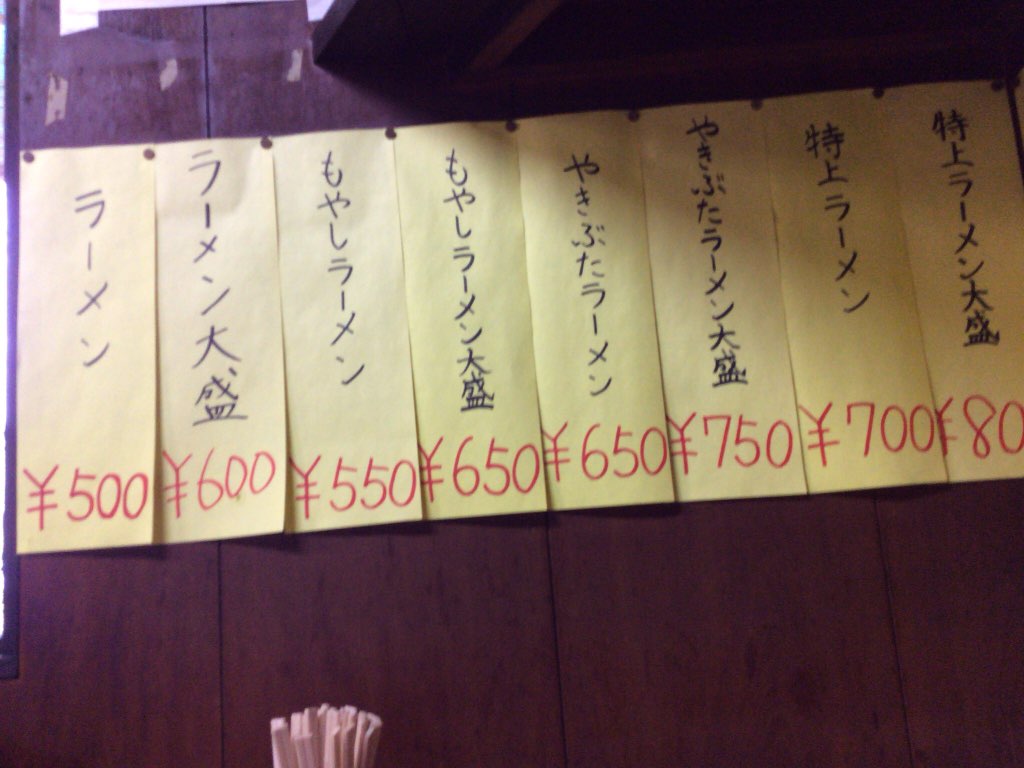 ラーメン
¥500
ラーメン大盛
¥600
もやしラーメン
¥550
もやしラーメン大盛
¥650
やきぶたラーメン
¥650
やきぶたラーメン大盛
¥750
特上ラーメン
¥700
特上ラーメン大盛
¥80